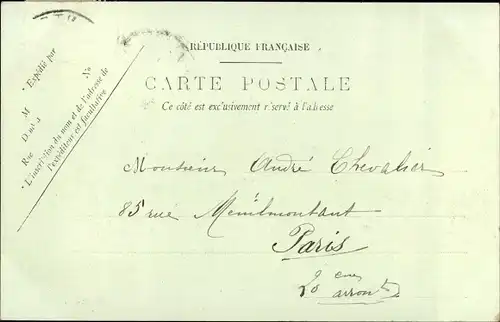 RÉPUBLIQUE FRANÇAISE
CARTE POSTALE
Ce côté est exclusivement réservé à l'adresse
* Expédié par
M
Demt à
Rue
No
* L'inscription du nom et de l'adresse de
l'expéditeur est facultative
Monsieur André Chevalier
85 rue Ménilmontant
Paris
20 eme
arront